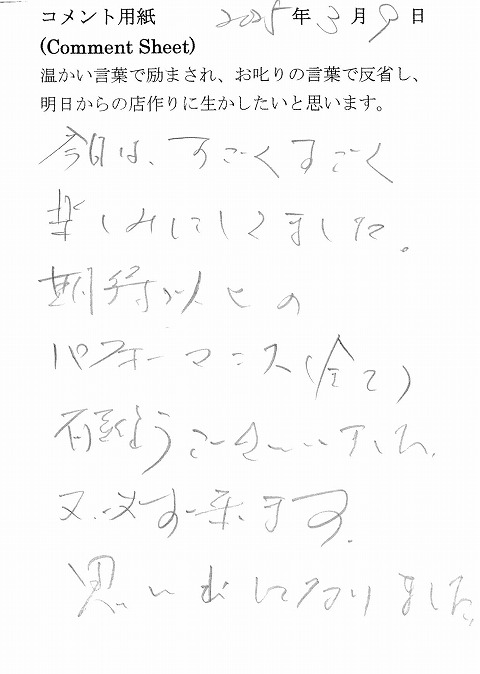 コメント用紙 2025年3月9日
(Comment Sheet)
温かい言葉で励まされ、お叱りの言葉で反省し、
明日からの店作りに生かしたいと思います。
今日は、すごくすごく
楽しみにしてました。
期待以上の
パフォーマンス(全て)
有難うございました。
又、必ず来ます。
思い出になりました